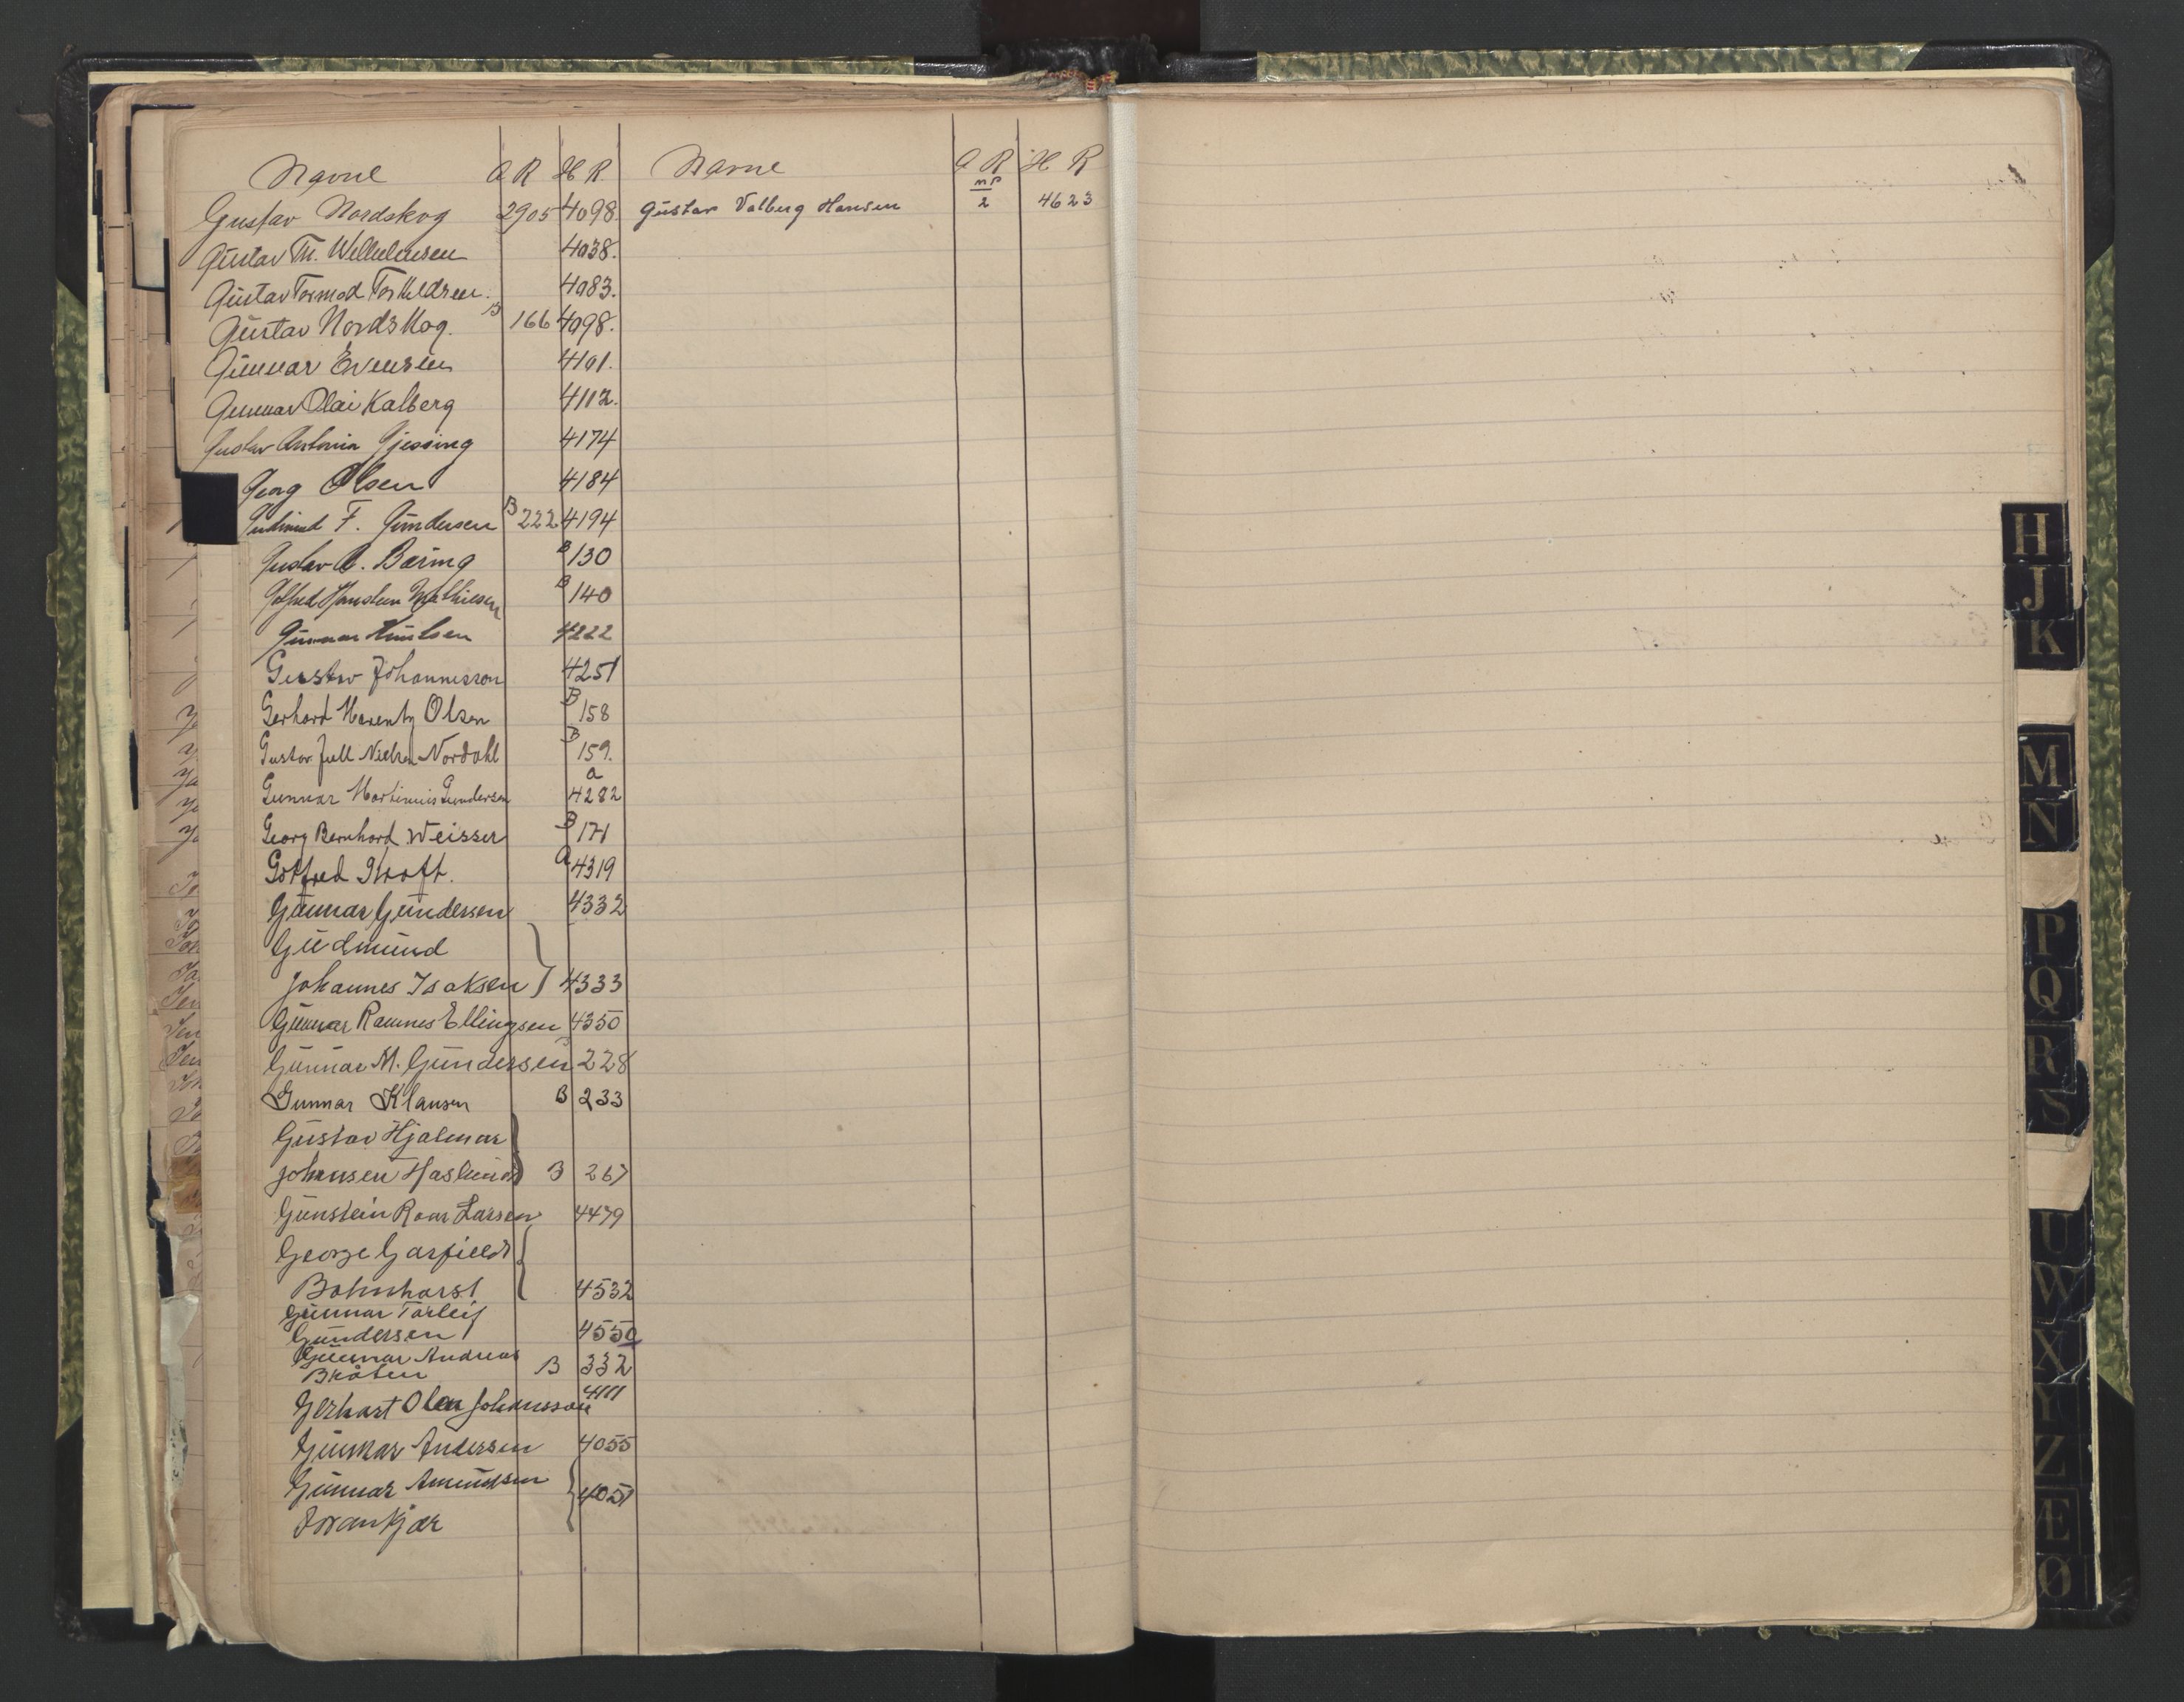 Navne A R H R.
Gustav Nordskog 2905 4098.
Gustav Th. Wilhelmsen 4038.
Gustav Tormod Torkeldsen. 4083.
Gustav Nordskog. B 166 4098.
Gunnar Evensen 4101.
Gunnar Olai Kalberg 4112.
Gustav Antonin Gjessing 4174
Georg Olsen 4184
Gudmund F. Gundersen B 222 4194
Gustav A. Bæring B 130
Gotfred Hanslem Mathiesen B 140
Gunnar Knutsen 4222
Gustav Johannesson 4251
Gerhard Marenty Olsen B 158
Gustav Juell Nielsen Nordahl B 159.
Gunnar Martinius Gundersen a 4282
Georg Bernhard Weisser B 171
Gotfred Kroft. a 4319
Gunnar Gundersen 4332
Gudmund
Johannes Isaksen 4333
Gunnar Ramnes Ellingsen 4350
Gunnar M. Gundersen B 228
Gunnar Klausen B 233
Gustav Hjalmar
Johansen Haslund B 267
Gunstein Roar Larsen 4479
George Garfield
Bohnhorst 4532
Gunnar Torleif
Gundersen 4550
Gunnar Andreas
Bråten B 332
Gerhart Olea Johansson 4111
Gunnar Andersen 4055
Gunnar Amundsen 4051
Svankjær
Navne A R H R
Gustav Valberg Hansen nr 2 4623
H
J
K
M
N
P
Q
R
S
U
W
X
Y
Z
Æ
Ø